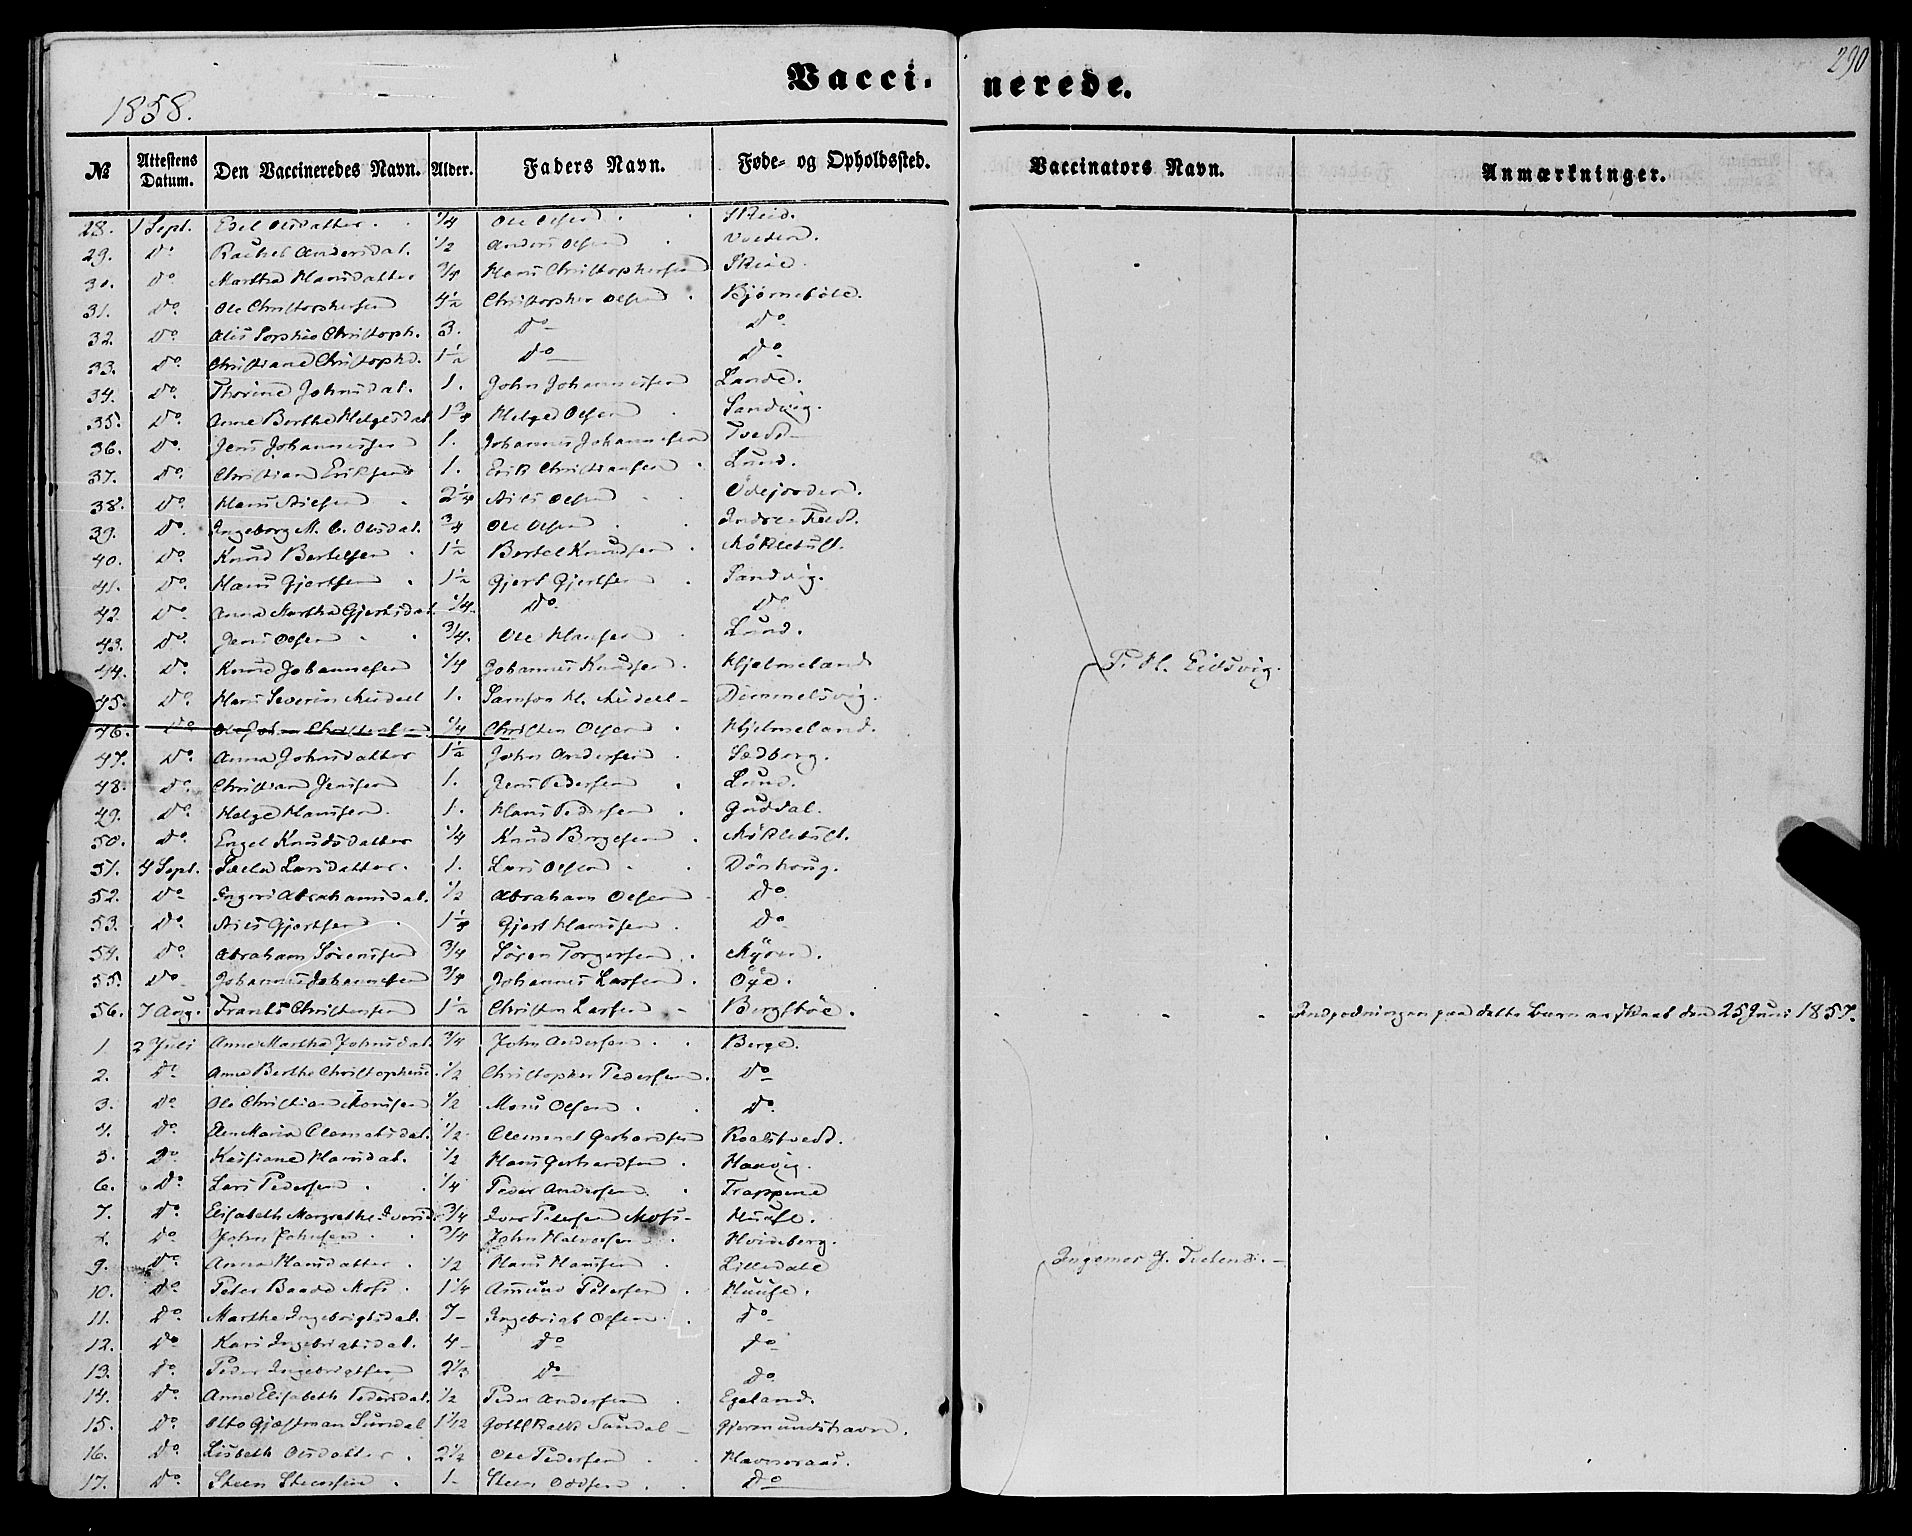 290
Vaccinerede.
1858.
№ | Attestens Datum. | Den Vaccineredes Navn. | Alder. | Faders Navn. | Føde- og Opholdssted. | Vaccinators Navn. | Anmærkninger.
28. | 1 Sept. | Edel Olsdatter | 1/4 | Ole Olsen | Skeid.
29. | Do | Rachel Andersdat. | 1/2 | Anders Olsen
30. | Do | Martha Hansdatter | 3/4 | Hans Christophersen
31. | Do | Ole Christophersen | 4½ | Christopher Olsen | Bjørnebøle.
32. | Do | Christoph. | 3. | Do | Do
33. | Do | Christiane Christophd. | 1½ | Do | Do
34. | Do | Thorine Johnsdat. | 1. | John Johannessen | Lande.
35. | Do | Anne Berthe Helgesdat. | 1 3/4 | Helge Olsen | Sandvig.
36. | Do | Jens Johannessen | 1. | Johannes Johannesen | Tvedt
37. | Do | Christian Eriksen | 1. | Erik Christiansen | Lund.
38. | Do | Hans Nilsen | 2¼ | Nils Olsen | Ödejorden.
39. | Do | Ingeborg M. C. Olsdat. | 3/4 | Ole Olsen
40. | Do | Knud Bertelsen | 1½ | Bertel Knudsen | Möklebust.
41. | Do | Hans Gjertsen | 1½ | Gjert Gjertsen | Sandvig.
42. | Do | Anna Martha Gjertsdat. | 1/4. | Do | Do
43. | Do | Jens Olsen | 3/4. | Ole Hansen | Lund.
44. | Do | Knud Johannesen | 1/4 | Johannes Knudsen | Hjelmeland
45. | Do | Hans Severin Meidell | 1. | Samson H. Meidell | Dimmelsvig.
46. | Do | Ole John Christensen | 1/4 | Christen Olsen | Hjelmeland.
47. | Do | Anna Johnsdatter | 1½ | John Andersen | Sædberg.
48. | Do | Christian Jensen | 1. | Jens Pedersen | Lund.
49. | Do | Helge Hansen | 1. | Hans Pedersen | Guddal.
50. | Do | Engel Knudsdatter | 1/4 | Knud Borgesen | Möklebust.
51. | 4 Sept. | Larsdatter. | 1. | Lars Olsen | Dörhoug.
52. | Do | Ingeri Abrahamsdat. | 1/2 | Abraham Olsen | Do
53. | Do | Nils Gjertsen | 1¼ | Gjert Hansen | Do
54. | Do | Abraham Sörensen | 3/4 | Sören Torgersen | Myren.
55. | Do | Johannes Johannesen | 3/4 | Johannes Larsen | Öye.
56. | 7 Aug. | Frants Christensen | 1½ | Christen Larsen | Bergstøe. | Indpodningen paa dette Barn er skeet den 25 Juni 1857.
T. H. Eidsvig.
1. | 2 Juli | Anne Martha Johnsdat. | 3/4 | John Andersen | Berge.
2. | Do | Anna Berthe Christophersd. | 1/2 | Christopher Pedersen | Do
3. | Do | Ole Christian Monsen | 1/2 | Mons Olsen | Do
4. | Do | Elen Maria Clemetsdat. | 1/2 | Clement Gerhardsen | Roaldstvedt.
5. | Do | Kasiane Hansdat. | 1/2 | Hans Gerhardsen | Haavig.
6. | Do | Lars Pedersen | 1/4 | Peder Andersen | Trappene
7. | Do | Elisabeth Margrethe Iversd. | 3/4 | Iver Petersen Moss | Huuse.
8. | Do | John Johnsen | 3/4 | John Halvorsen | Hvideberg.
9. | Do | Anna Hansdatter | 1/2 | Hans Hansen | Lilledale
10. | Do | Peter Baade Moss | 1¼ | Amund Petersen | Huuse.
11. | Do | Marthe Ingebrigtsdat. | 7 | Ingebrigt Olsen | Do
12. | Do | Kari Ingebrigtsdat. | 4 | Do | Do
13. | Do | Peder Ingebrigtsen | 2½ | Do | Do
14. | Do | Anne Elisabeth Pedersdat. | 1/2 | Peder Andersen | Egeland.
15. | Do | Otto Gjæstman Sundal | 1 1/12 | Sundal | Gjermundshavn.
16. | Do | Lisbeth Olsdatter | 2½ | Ole Pedersen | Havneraas.
17. | Do | Steen Steensen | 1 | Steen Oddsen | Do
Ingemar J.